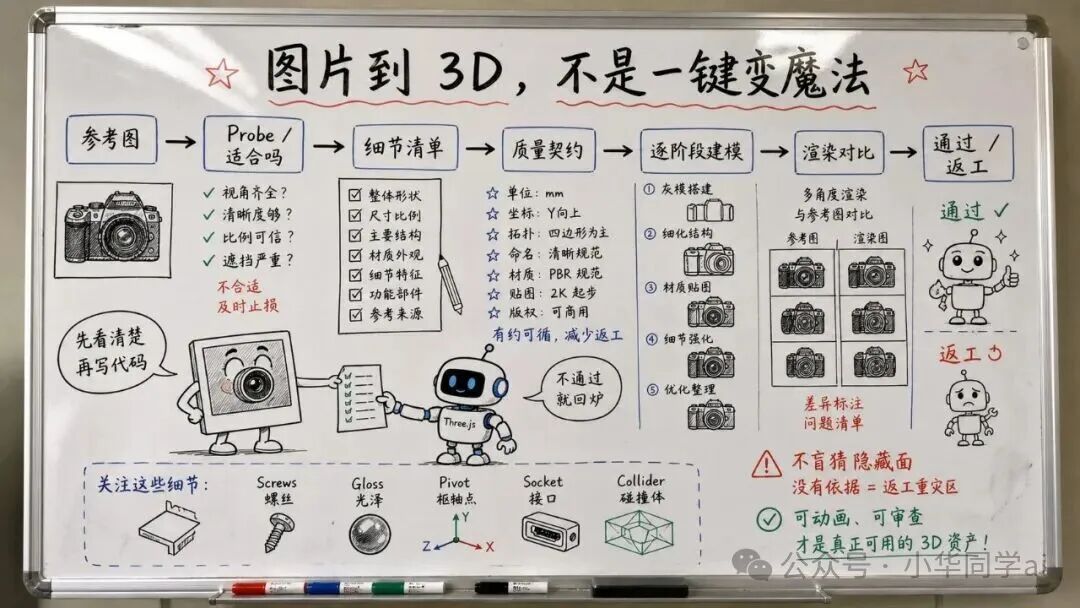 图片到 3D，不是一键变魔法
参考图
Probe /
适合吗
细节清单
质量契约
逐阶段建模
渲染对比
通过 /
返工
视角齐全？
清晰度够？
比例可信？
遮挡严重？
不合适
及时止损
整体形状
尺寸比例
主要结构
材质外观
细节特征
功能部件
参考来源
单位：mm
坐标：Y向上
拓扑：四边形为主
命名：清晰规范
材质：PBR 规范
贴图：2K 起步
版权：可商用
有约可循，减少返工
① 灰模搭建
② 细化结构
③ 材质贴图
④ 细节强化
⑤ 优化整理
多角度渲染
与参考图对比
参考图
渲染图
差异标注
问题清单
通过
返工
先看清楚
再写代码
Three.js
不通过
就回炉
关注这些细节：
Screws
螺丝
Gloss
光泽
Pivot
枢轴点
Y
Z
X
Socket
接口
Collider
碰撞体
不盲猜隐藏面
没有依据 = 返工重灾区
可动画、可审查
才是真正可用的 3D 资产！
公众号 · 小华同学ai